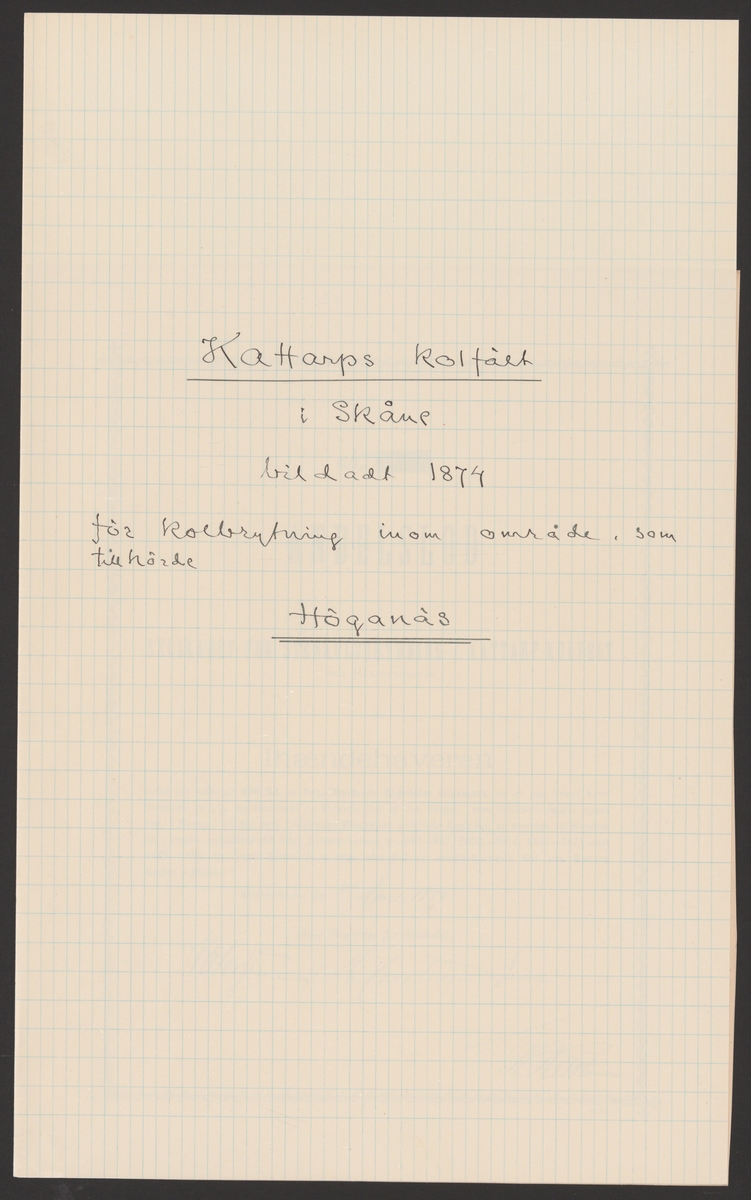 Kattarps kolfält
i Skåne
bildadt 1874
för kolbrytning inom område, som
tillhörde
Höganäs